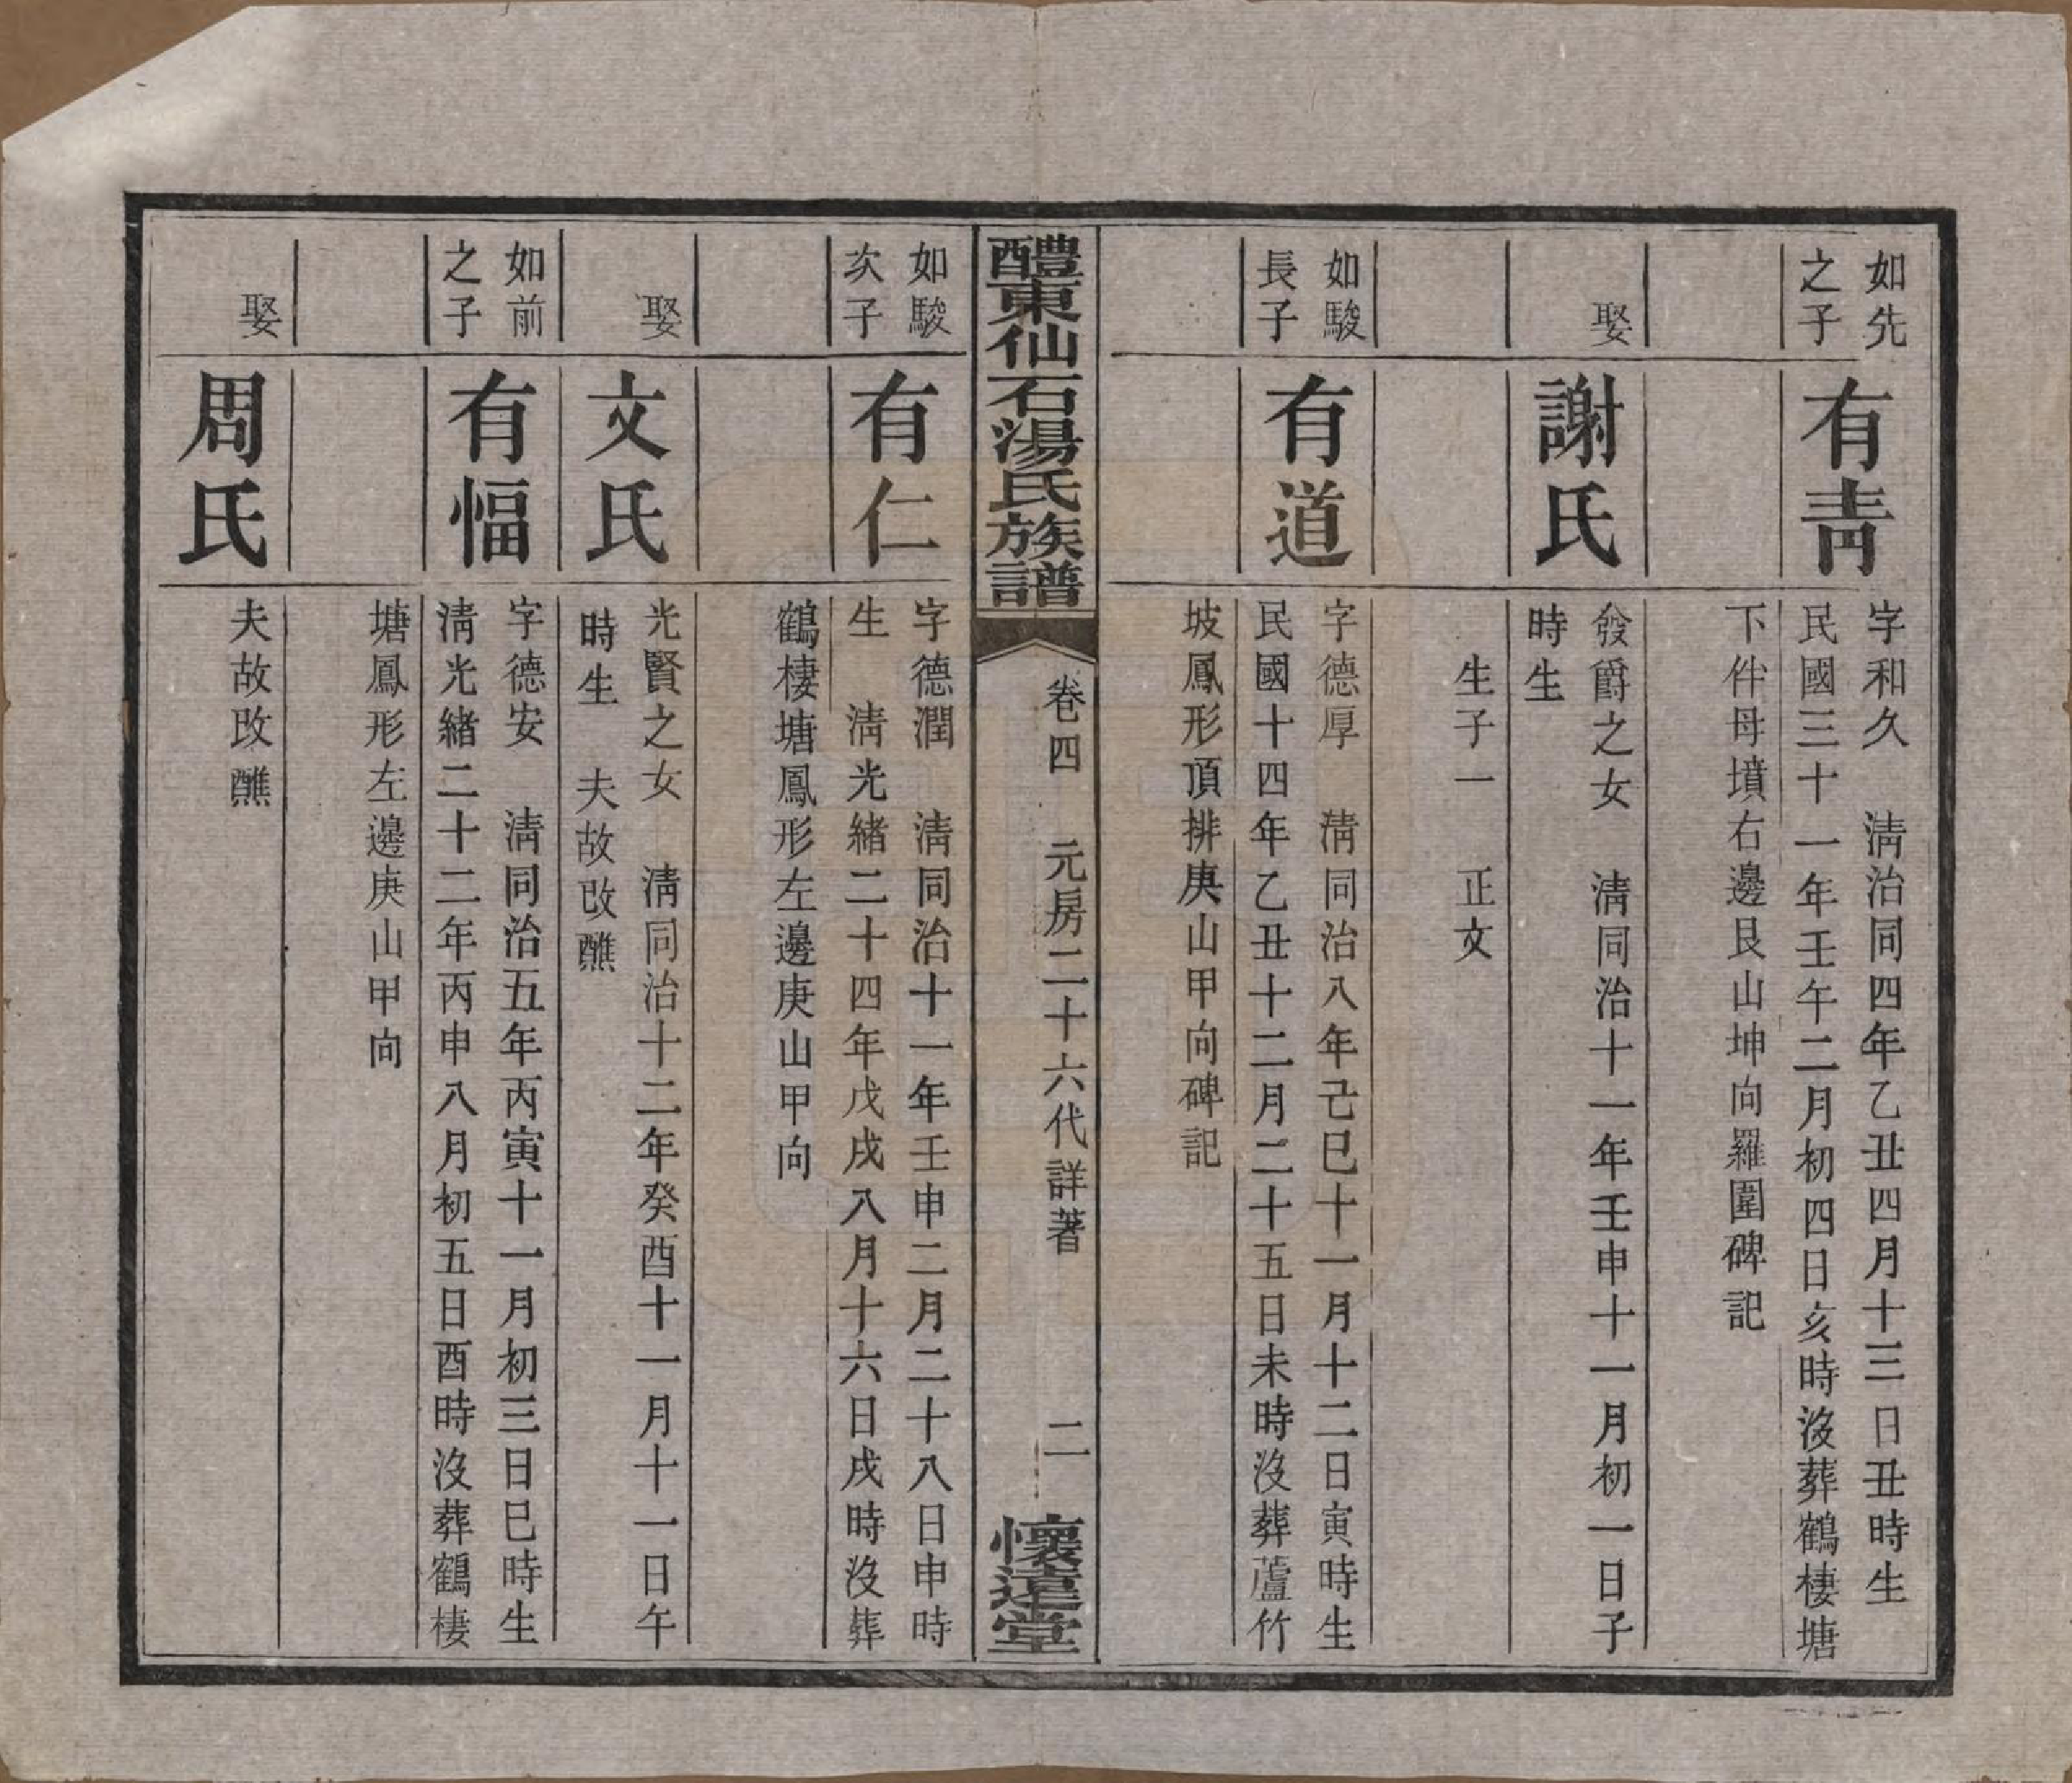 如先
之子
有靑
字和久　淸治同四年乙丑四月十三日丑時生
民國三十一年壬午二月初四日亥時沒葬鶴棲塘
下伴母墳右邊艮山坤向羅圍碑記
娶
謝氏
發爵之女　淸同治十一年壬申十一月初一日子
時生
生子一　正文
如駿
長子
有道
字德厚　淸同治八年己巳十一月十二日寅時生
民國十四年乙丑十二月二十五日未時沒葬蘆竹
坡鳳形頂排庚山甲向碑記
醴東仙石湯氏族譜
卷四　元房二十六代詳著
二
懷遠堂
如駿
次子
有仁
字德潤　淸同治十一年壬申二月二十八日申時
生　淸光緖二十四年戊戌八月十六日戌時沒葬
鶴棲塘鳳形左邊庚山甲向
娶
文氏
光賢之女　淸同治十二年癸酉十一月十一日午
時生　夫故改醮
如前
之子
有愊
字德安　淸同治五年丙寅十一月初三日巳時生
淸光緖二十二年丙申八月初五日酉時沒葬鶴棲
塘鳳形左邊庚山甲向
娶
周氏
夫故改醮